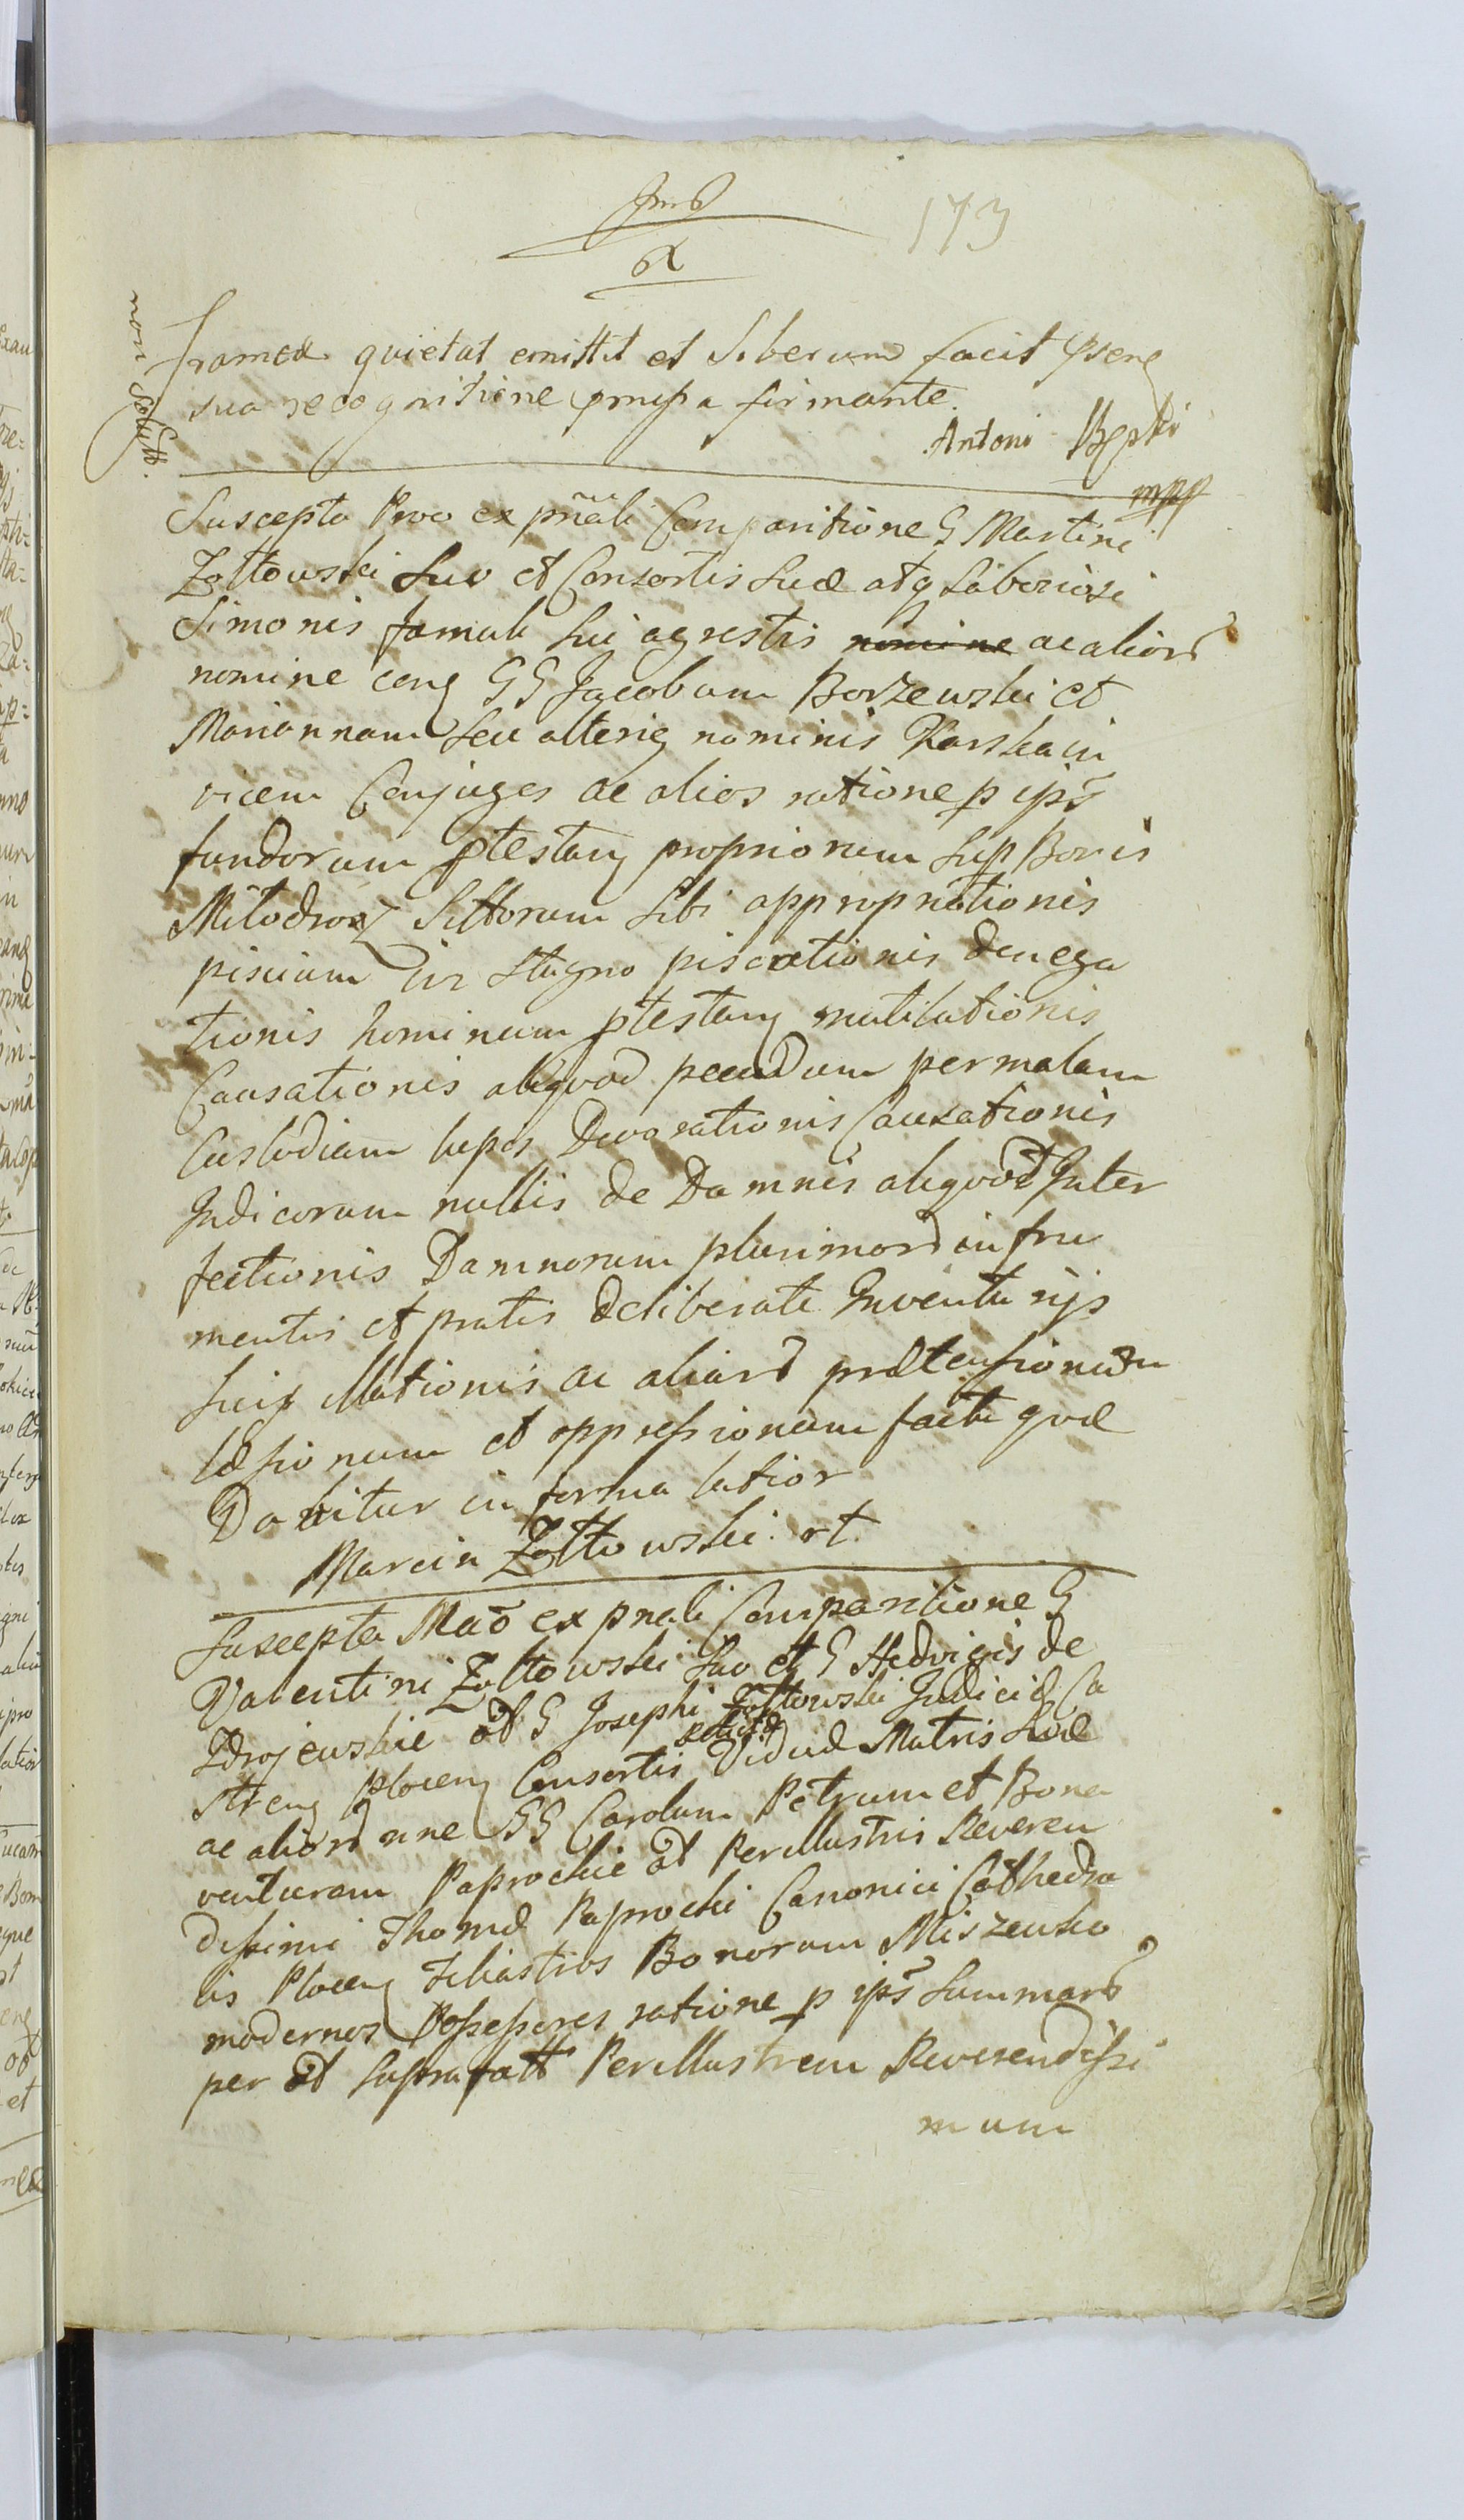 173
non solutt.
quietat emittit et Liberum facit pseng
sua recognitione pmissa firmante.
Antoni
mpp
Suscepta Prōo ex pn̄ali Comparitione G Martini
Zołtowski Suo et Consortis Suæ atq Laboriosi
Simonis famuli Sui agrestis nomine ac alior
nomine cong GG Jacobum Borzewski et
Mariannam Seu alterig nominis Karska in
vicem Conjuges ac alios ratione p ips
fundorum ptestang propriorum Sup Bonis
Miłodroż Sittorum Sibi appropriationis
piscium in Stagno piscationis denega
tionis hominum ptestang mutilationis
Causationis aliqvod pecudum per malam
Custodiam lupis Devorationis Causationis
Judicorum nullis de Damnis aliqvod Inter
fectionis Damnorum plurimor in fru
mentis et pratis deliberate Inventarijs
Suis Illationis ac aliar prætensionum
læsionum et oppressionum facta qvæ
Dabitur in forma latior
Marcin Zołtowski rt
Suscepta Mać ex pnali Comparitione G
Valentini Zołtowski Suo et G Hedvigis de
Zdrojewskie ot G Josephi Zołtowski Judicis Ca
streng Ploceng Consortis relictæ Viduæ Matris Suæ
ac alior nne GG Carolum Petrum et Bona
venturam Paprockie ot Perillustris Reveren
dissimi Thomæ Paprocki Canonici Cathedra
lis Ploceng Filiastros Bonorum Miszewko
modernos Possessores ratione p ips Summar
per ot Suprafatt Perillustrem Reverendissi
mum